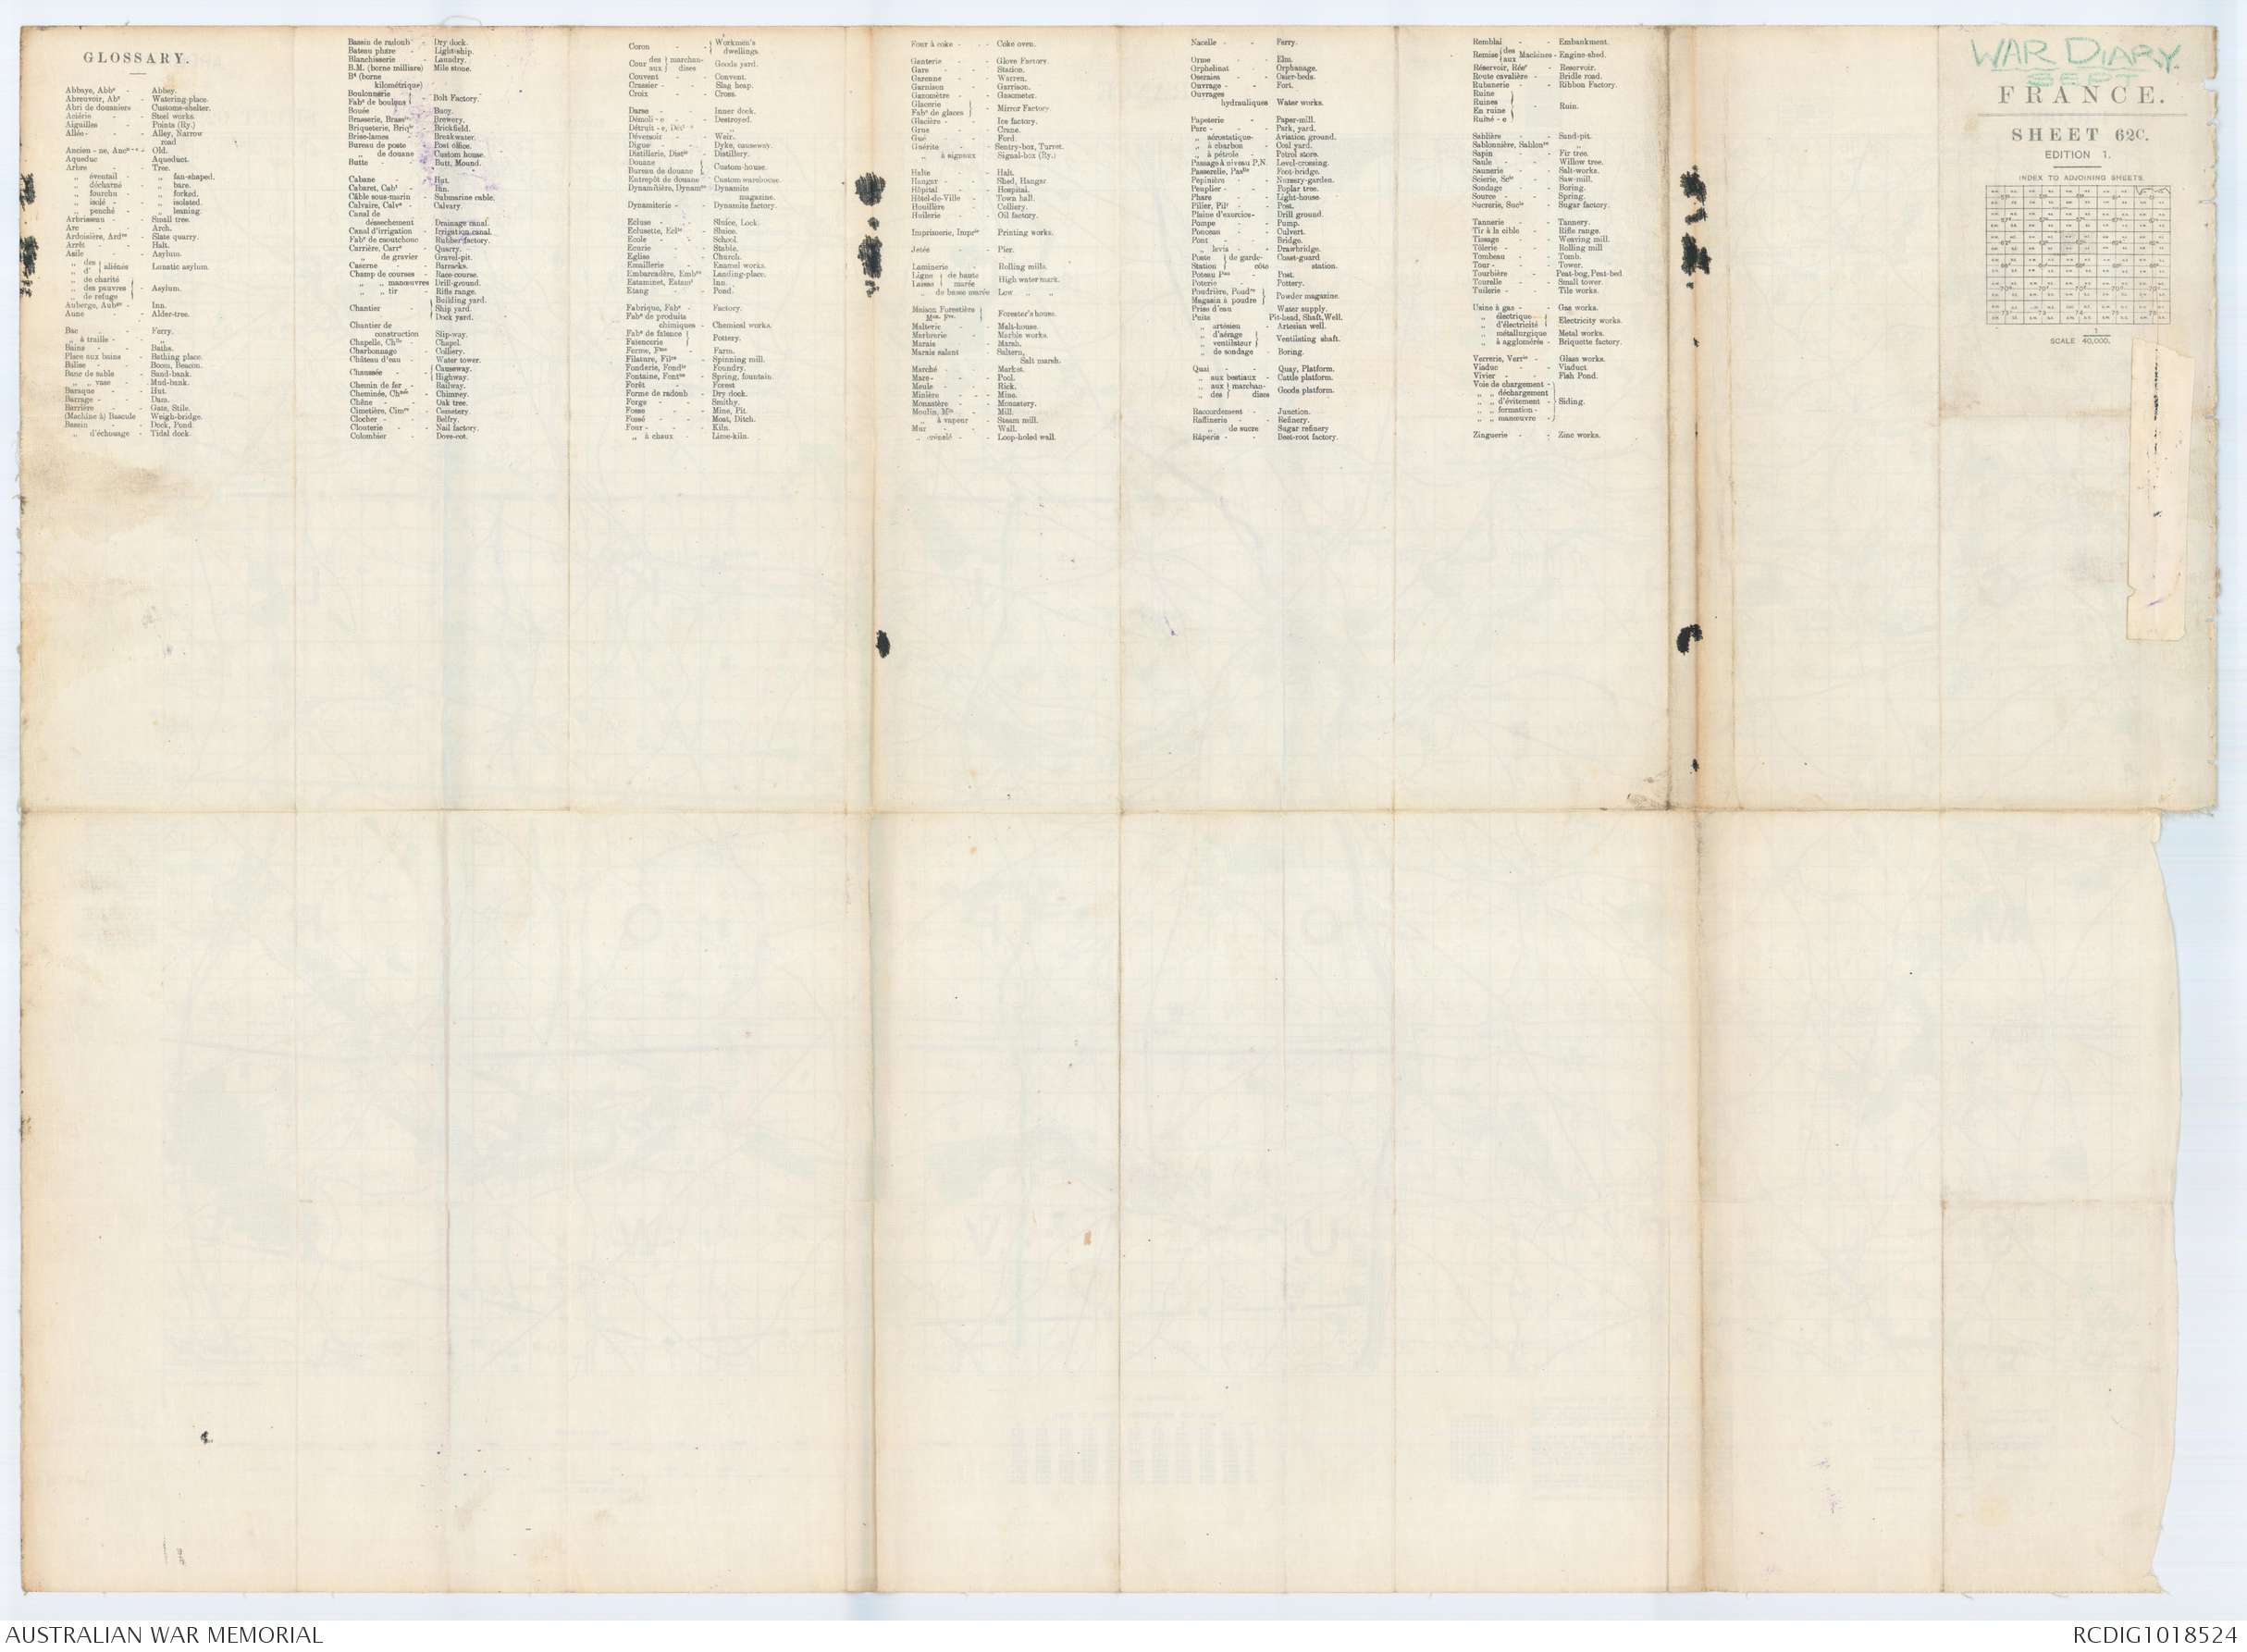 GLOSSARY.
Abbaye, Abbe - Abbey.
Abreuvoir, Abr - Watering-place.
Abri de douaniers Customs-shelter.
Aciérie - - Steel works.
Aiguilles - Points (Ry.)
Allée - - - Alley, Narrow
road
Ancien - ne, - Old.
Aqueduc - Aqueduct.
Arbre - - Tree.
„ éventail - „ fan-shaped.
„ décharné - „ bare.
„ fourchu - „ forked.
„ isolé - - „ isolated.
„ penché - „ leaning.
Arbrisseau - - Small tree.
Arc - - - Arch.
Ardoisière, Ardre - Slate quarry.
Arrêt - - Halt.
Asile - - - Asylum.
„ des } aliénés Lunatic asylum.
„ d' }
„ de charité }
„ des pauvres } - Asylum.
„ de refuge }
Auberge, Aubge - Inn.
Aune - - Alder-tree.
Bac - - Ferry.
„ à traille - - „
Bains - - - Baths.
Place aux bains - Bathing place.
Balise - - - Boom, Beacon.
Banc de sable - Sand-bank.
„ „ vase - Mud-bank.
Baraque - - Hut.
Barrage - - - Dam.
Barrière - - Gate, Stile.
(Machine à) Bascule Weigh-bridge.
Bassin - - Dock, Pond.
„ d'échouage - Tidal dock.
Bassin de radoub - Dry dock.
Bateau phare - Light-ship.
Blanchisserie - Laundry.
B.M. (borne milliare) Mile stone.
Bo (borne
kilométrique)
Boulonnerie }
Fabe de boulons } - Bolt Factory.
Bouée - - Buoy.
Brasserie, Brassie - Brewery.
Briqueterie, Briqie - Brickfield.
Brise-lames - Breakwater.
Bureau de poste - Post office.
„ de douane - Custom house.
Butte - - - Butt, Mound.
Cabane - - Hut.
Cabaret, Cabt - Inn.
Câble sous-marin - Submarine cable.
Calvaire, Calve - Calvary.
Canal de
dessèchement Drainage canal.
Canal d'irrigation - Irrigation canal.
Fabe de caoutchouc Rubber factory.
Carrière, Carre - Quarry.
„ de gravier - Gravel-pit.
Caserne - - Barracks.
Champ de courses - Race-course.
„ „ manœuvres Drill-ground.
„ „ tir - Rifle range.
Chantier - { Building yard.
Ship yard.
Dock yard.
Chantier de
construction Slip-way.
Chapelle, Chlle - Chapel.
Charbonnage - Colliery.
Château d'eau - Water tower.
Chaussée - - { Causeway.
Highway.
Chemin de fer - Railway.
Cheminée, Chnée - Chimney.
Chêne - - Oak tree.
Cimetière, Cimre - Cemetery.
Clocher - - - Belfry.
Clouterie - - Nail factory.
Colombier - Dove-cot.
Coron - - } Workmen's
dwellings.
Cour des } marchan- Goods yard.
aux } dises
Couvent - - Convent.
Crassier - - - Slag heap.
Croix - - Cross.
Darse - - - Inner dock.
Démoli - e - - Destroyed.
Détruit - e, - „
Déversoir - - Weir.
Digue - - - Dyke, causeway.
Distillerie, Distie - Distillery.
Douane }
Bureau de douane } Custom-house.
Entrepôt de douane - Custom warehouse.
Dynamitière, - Dynamite
magazine.
Dynamiterie - - Dynamite factory.
Ecluse - - - Sluice, Lock.
Eclusette, Eclte - Sluice.
Ecole - - - School.
Ecurie - - - Stable.
Eglise - - - Church.
Emaillerie - - Enamel works.
Embarcadère, - Landing-place.
Estaminet, Estamt - Inn.
Etang - - Pond.
Fabrique, Fabe - Factory.
Fabe de produits
chimiques - Chemical works.
Fabe de faïence }
Faïencerie } Pottery.
Ferme, Fme - Farm.
Filature, Filre - Spinning mill.
Fonderie, Fondie - Foundry.
Fontaine, Fontne - Spring, fountain.
Forêt - - Forest
Forme de radoub - Dry dock.
Forge - - - Smithy.
Fosse - - - Mine, Pit.
Fossé - - - Moat, Ditch.
Four - - - Kiln.
„ à chaux - - Lime-kiln.
Four à coke - - - Coke oven.
Ganterie - Glove Factory.
Gare - - - Station.
Garenne - - Warren.
Garnison - - Garrison.
Gazomètre - - Gasometer.
Glacerie }
Fabe de glaces } - Mirror Factory
Glacière - - Ice factory.
Grue - - Crane.
Gué - - Ford.
Guérite - - Sentry-box, Turret.
„ à signaux Signal-box (Ry.)
Halte - - Halt.
Hangar - - - Shed, Hangar.
Hôpital - - Hospital.
Hôtel-de-Ville - - Town hall.
Houillère - - Colliery.
Huilerie - - Oil factory.
Imprimerie, Imprie - Printing works.
Jetée - - - Pier.
Laminerie - Rolling mills.
Ligne } de haute
Laisse } marée High water mark.
„ de basse marée Low „ „
Maison Forestière }
Mon Fre } Forester's house.
Malterie - - Malt-house.
Marbrerie - - Marble works.
Marais - - - Marsh.
Marais salant - Saltern,
Salt marsh.
Marché - - - Market.
Mare - - - Pool.
Meule - - - Rick.
Minière - - - Mine.
Monastère - - Monastery.
Moulin, Min - - Mill.
„ à vapeur - Steam mill.
Mur - - - Wall.
„ crénelé - - Loop-holed wall.
Nacelle - - Ferry.
Orme - - Elm.
Orphelinat - Orphanage.
Oseraies - - Osier-beds.
Ouvrage - - Fort.
Ouvrages
hydrauliques Water works.
Papeterie - Paper-mill.
Parc - - - Park, yard.
„ aérostatique - Aviation ground.
„ à charbon - Coal yard.
„ à pétrole - Petrol store.
Passage à niveau P.N. Level-crossing.
Passerelle, Paslle - Foot-bridge.
Pépinière - - Nursery-garden.
Peuplier - - Poplar tree.
Phare - - Light-house.
Pilier, Pilr - - Post.
Plaine d'exercice - Drill ground.
Pompe - - Pump.
Ponceau - - Culvert.
Pont - - - Bridge.
„ levis - - Drawbridge.
Poste } de garde- Coast-guard
Station } côte station.
Poteau - Post.
Poterie - - Pottery.
Poudrière, Poudre }
Magasin à poudre } Powder magazine.
Prise d'eau Water supply.
Puits Pit-head, Shaft, Well.
„ artésien - Artesian well.
„ d'aérage }
„ ventilateur } Ventilating shaft.
„ de sondage - Boring.
Quai - - - Quay, Platform.
„ aux bestiaux - Cattle platform.
„ aux } marchan-
„ des } dises Goods platform.
Raccordement - Junction.
Raffinerie - - Refinery.
„ de sucre Sugar refinery
Râperie - - Beet-root factory.
Remblai - - Embankment.
Remise {des Machines - Engine-shed.
aux
Réservoir, Résr - Reservoir.
Route cavalière - - Bridle road.
Rubanerie - - Ribbon Factory.
Ruine }
Ruines }
En ruine } - Ruin.
Ruiné - e }
Sablière - - Sand-pit.
Sablonnière, Sablonre „
Sapin - - Fir tree.
Saule - - - Willow tree.
Saunerie - - Salt-works.
Scierie, Scie - - Saw-mill.
Sondage - - Boring.
Source - - - Spring.
Sucrerie, Sucie - Sugar factory.
Tannerie - - Tannery.
Tir à la cible - Rifle range.
Tissage - - Weaving mill.
Tôlerie - - Rolling mill
Tombeau - - Tomb.
Tour - - - Tower.
Tourbière - Peat-bog, Peat-bed.
Tourelle - - Small tower.
Tuilerie - - Tile works.
Usine à gas - - Gas works.
„ électrique }
„ d'électricité } Electricity works.
„ métallurgique Metal works.
„ à agglomérés - Briquette factory.
Verrerie, Verrie - Glass works.
Viaduc - - Viaduct.
Vivier - - - Fish Pond.
Voie de chargement - }
„ „ déchargement }
„ „ d'évitement - } Siding.
„ „ formation - }
„ „ manœuvre - }
Zinguerie - - Zinc works.
WAR DIARY.
SEPT
FRANCE.
SHEET 62C.
EDITION 1.
INDEX TO ADJOINING SHEETS.
SCALE 1/40,000.
AUSTRALIAN WAR MEMORIAL
RCDIG1018524